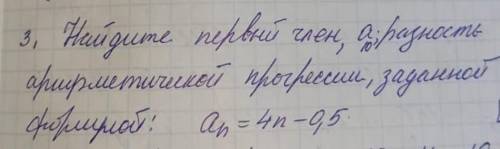 3, Найдите первый член, а; разность
арифметической прогрессии, заданной
формулой: aₙ = 4n - 0,5.